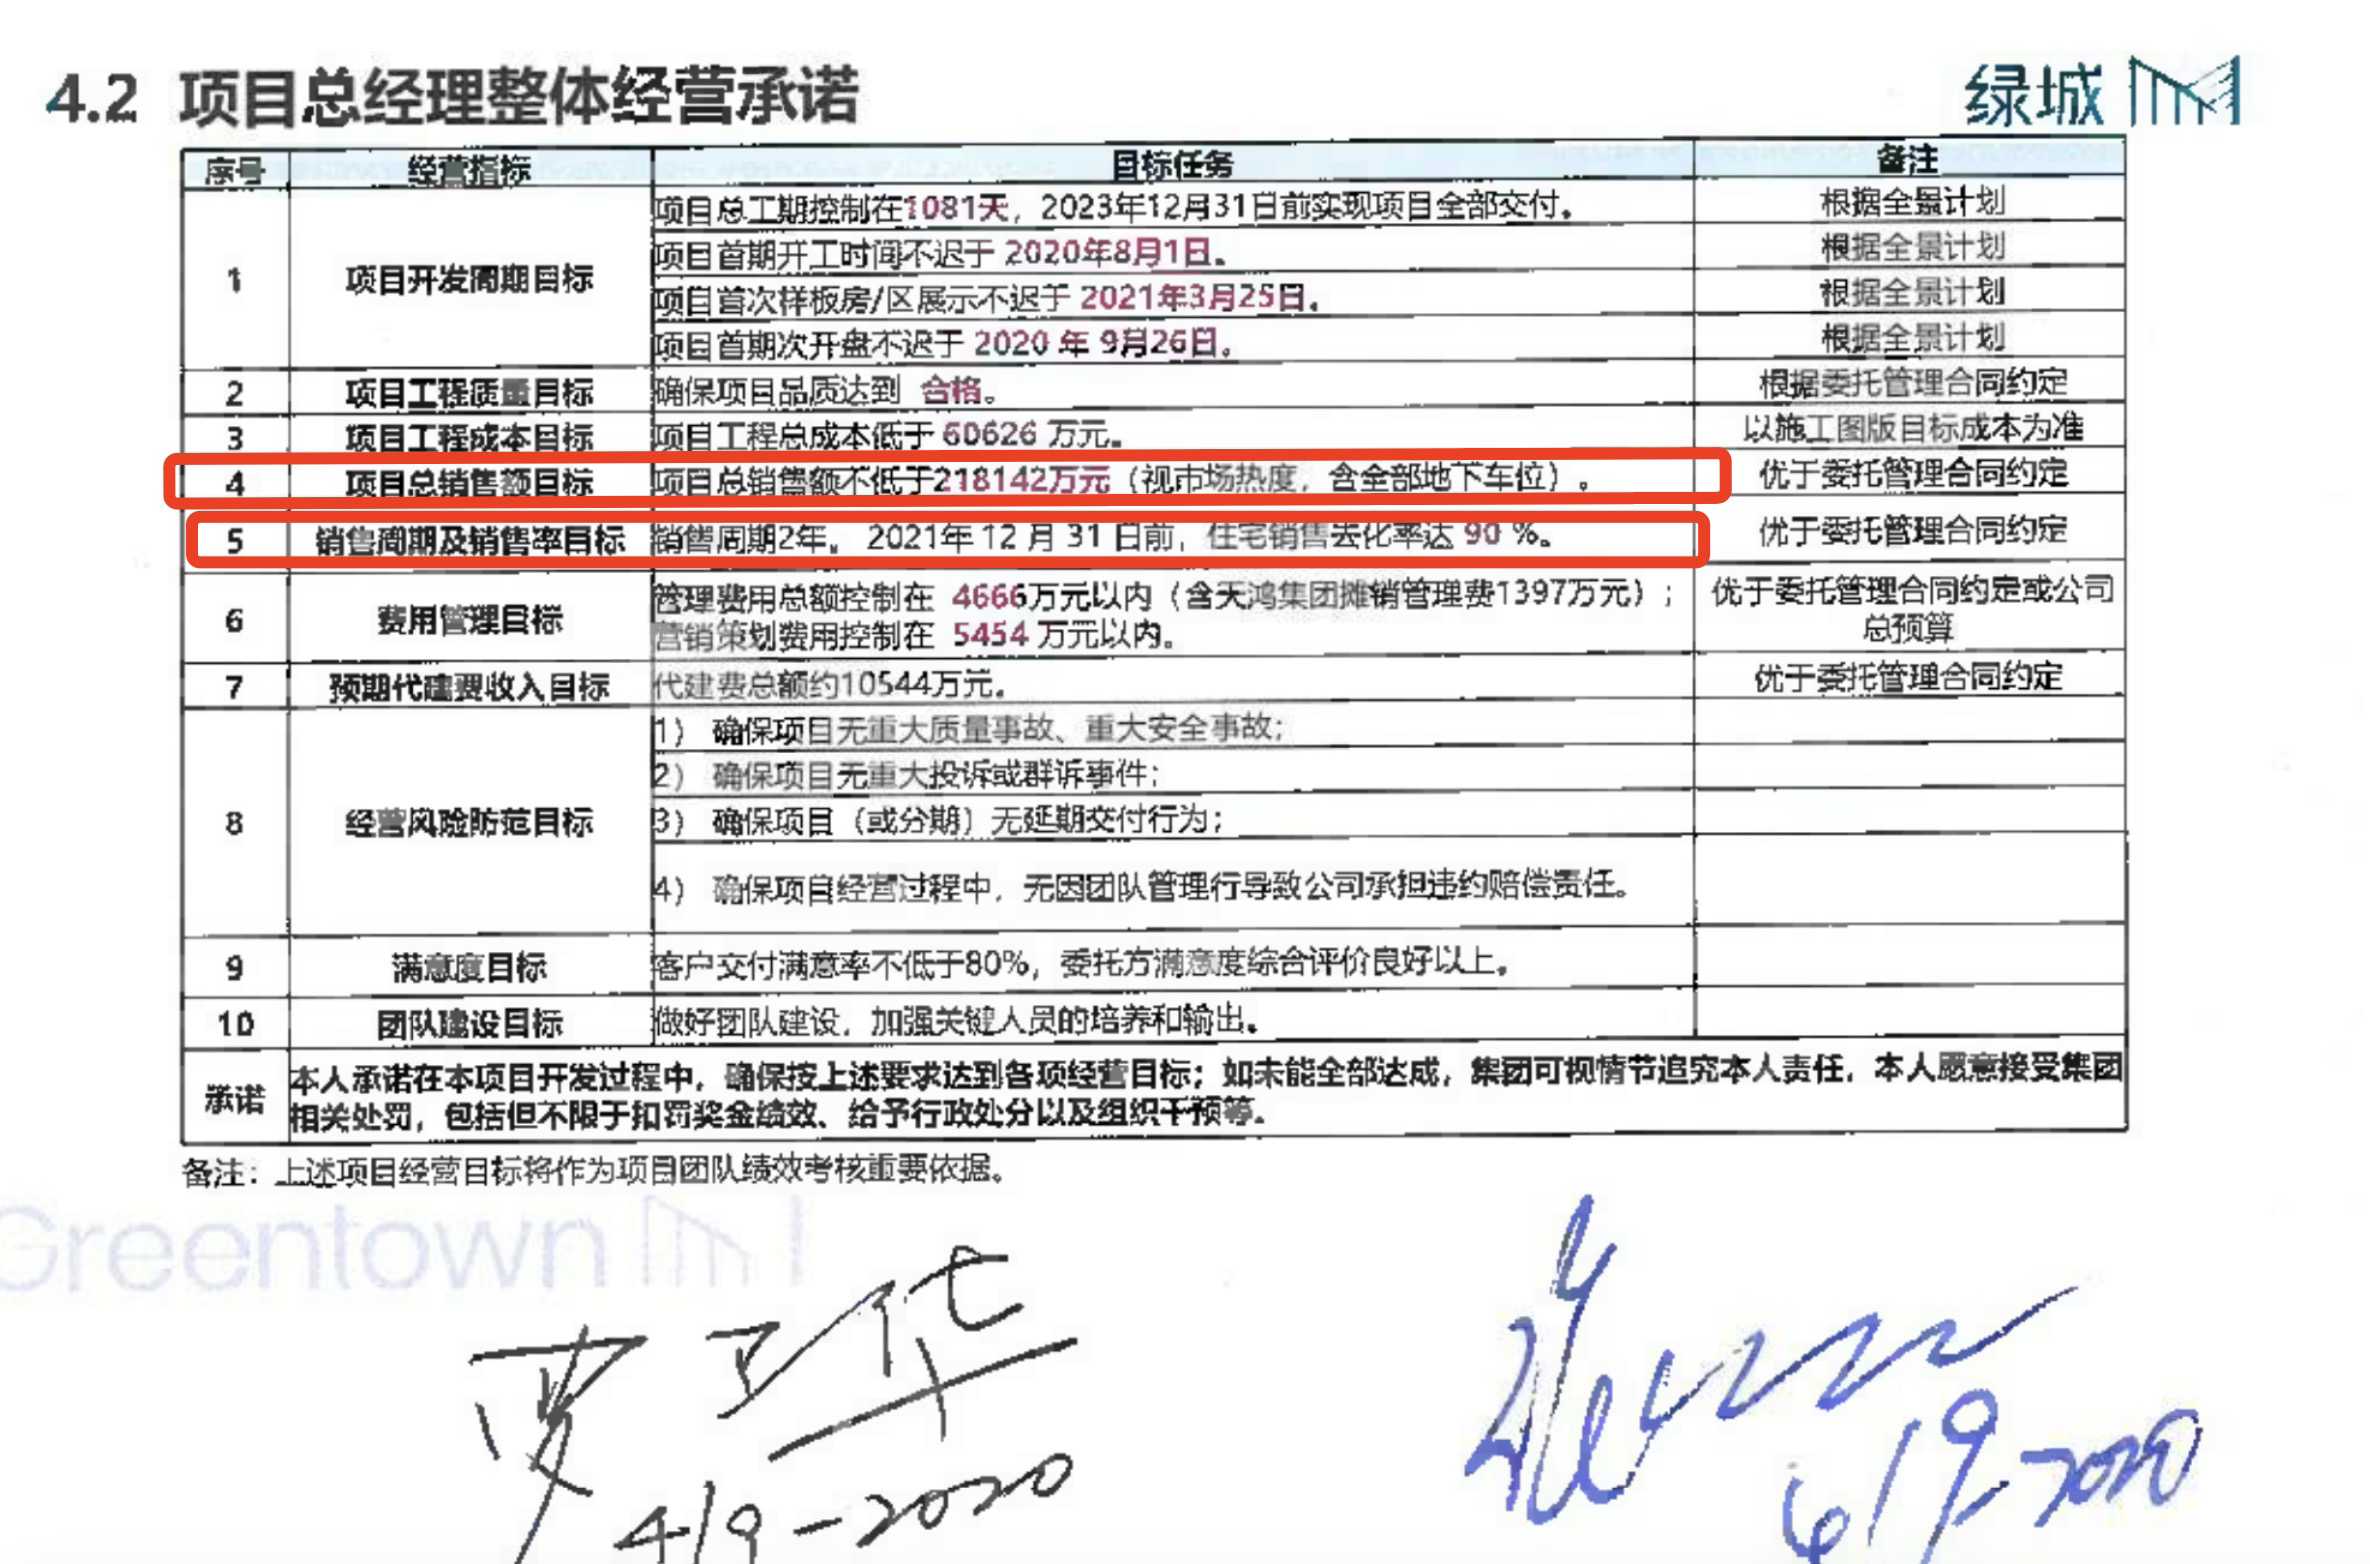 4.2 项目总经理整体经营承诺
绿城
序号 经营指标 目标任务 备注
1 项目开发周期目标
项目总工期控制在1081天，2023年12月31日前实现项目全部交付。 根据全景计划
项目首期开工时间不迟于 2020年8月1日。 根据全景计划
项目首次样板房/区展示不迟于 2021年3月25日。 根据全景计划
项目首期次开盘不迟于 2020 年 9月26日。 根据全景计划
2 项目工程质量目标 确保项目品质达到 合格。 根据委托管理合同约定
3 项目工程成本目标 项目工程总成本低于 60626 万元。 以施工图版目标成本为准
4 项目总销售额目标 项目总销售额不低于218142万元（视市场热度，含全部地下车位）。 优于委托管理合同约定
5 销售周期及销售率目标 销售周期2年。 2021年 12 月 31 日前，住宅销售去化率达 90 %。 优于委托管理合同约定
6 费用管理目标
管理费用总额控制在 4666万元以内（含天鸿集团摊销管理费1397万元）； 优于委托管理合同约定或公司
营销策划费用控制在 5454 万元以内。 总预算
7 预期代建费收入目标 代建费总额约10544万元。 优于委托管理合同约定
8 经营风险防范目标
1） 确保项目无重大质量事故、重大安全事故；
2） 确保项目无重大投诉或群诉事件；
3） 确保项目（或分期）无延期交付行为；
4） 确保项目经营过程中，无因团队管理行导致公司承担违约赔偿责任。
9 满意度目标 客户交付满意率不低于80%，委托方满意度综合评价良好以上。
10 团队建设目标 做好团队建设，加强关键人员的培养和输出。
承诺
本人承诺在本项目开发过程中，确保按上述要求达到各项经营目标；如未能全部达成，集团可视情节追究本人责任，本人愿意接受集团
相关处罚，包括但不限于扣罚奖金绩效、给予行政处分以及组织干预等。
备注：上述项目经营目标将作为项目团队绩效考核重要依据。
Greentown
4/9-2020
6/9-2020